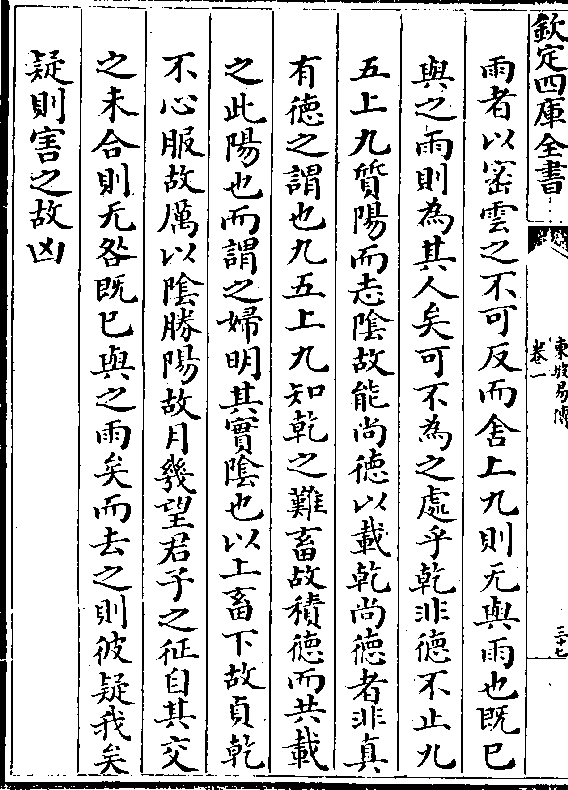 欽定四庫全書
東坡易傳
卷一
三十七
雨者以密雲之不可反而舍上九則无與雨也既已
與之雨則為其人矣可不為之處乎乾非德不止九
五上九質陽而志陰故能尚德以載乾尚德者非真
有德之謂也九五上九知乾之難畜故積德而共載
之此陽也而謂之婦明其實陰也以上畜下故貞乾
不心服故厲以陰勝陽故月幾望君子之征自其交
之未合則无咎既已與之雨矣而去之則彼疑我矣
疑則害之故凶